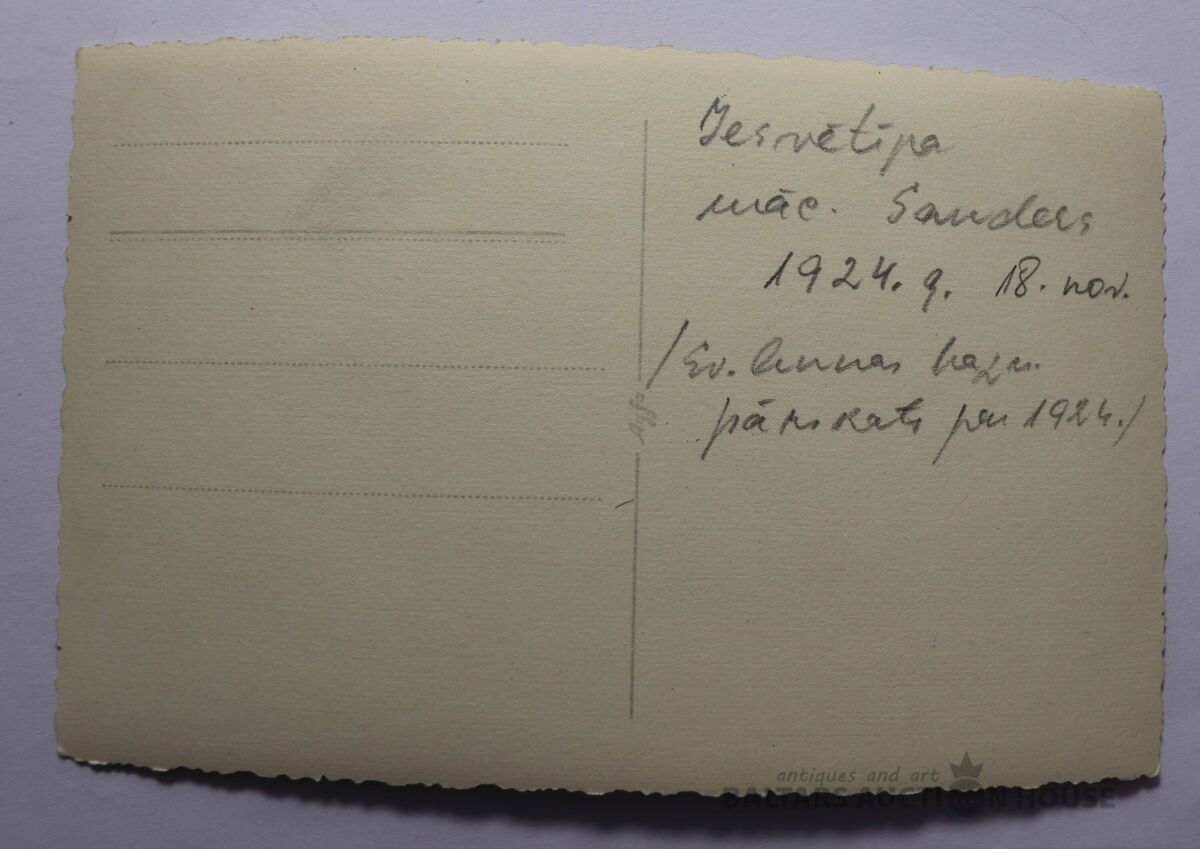 Iesvētīja
māc. Sanders
1924. g. 18. nov.
/Sv. Annas bazn.
pārskats par 1924./
antiques and art
BALTARS AUCTION HOUSE